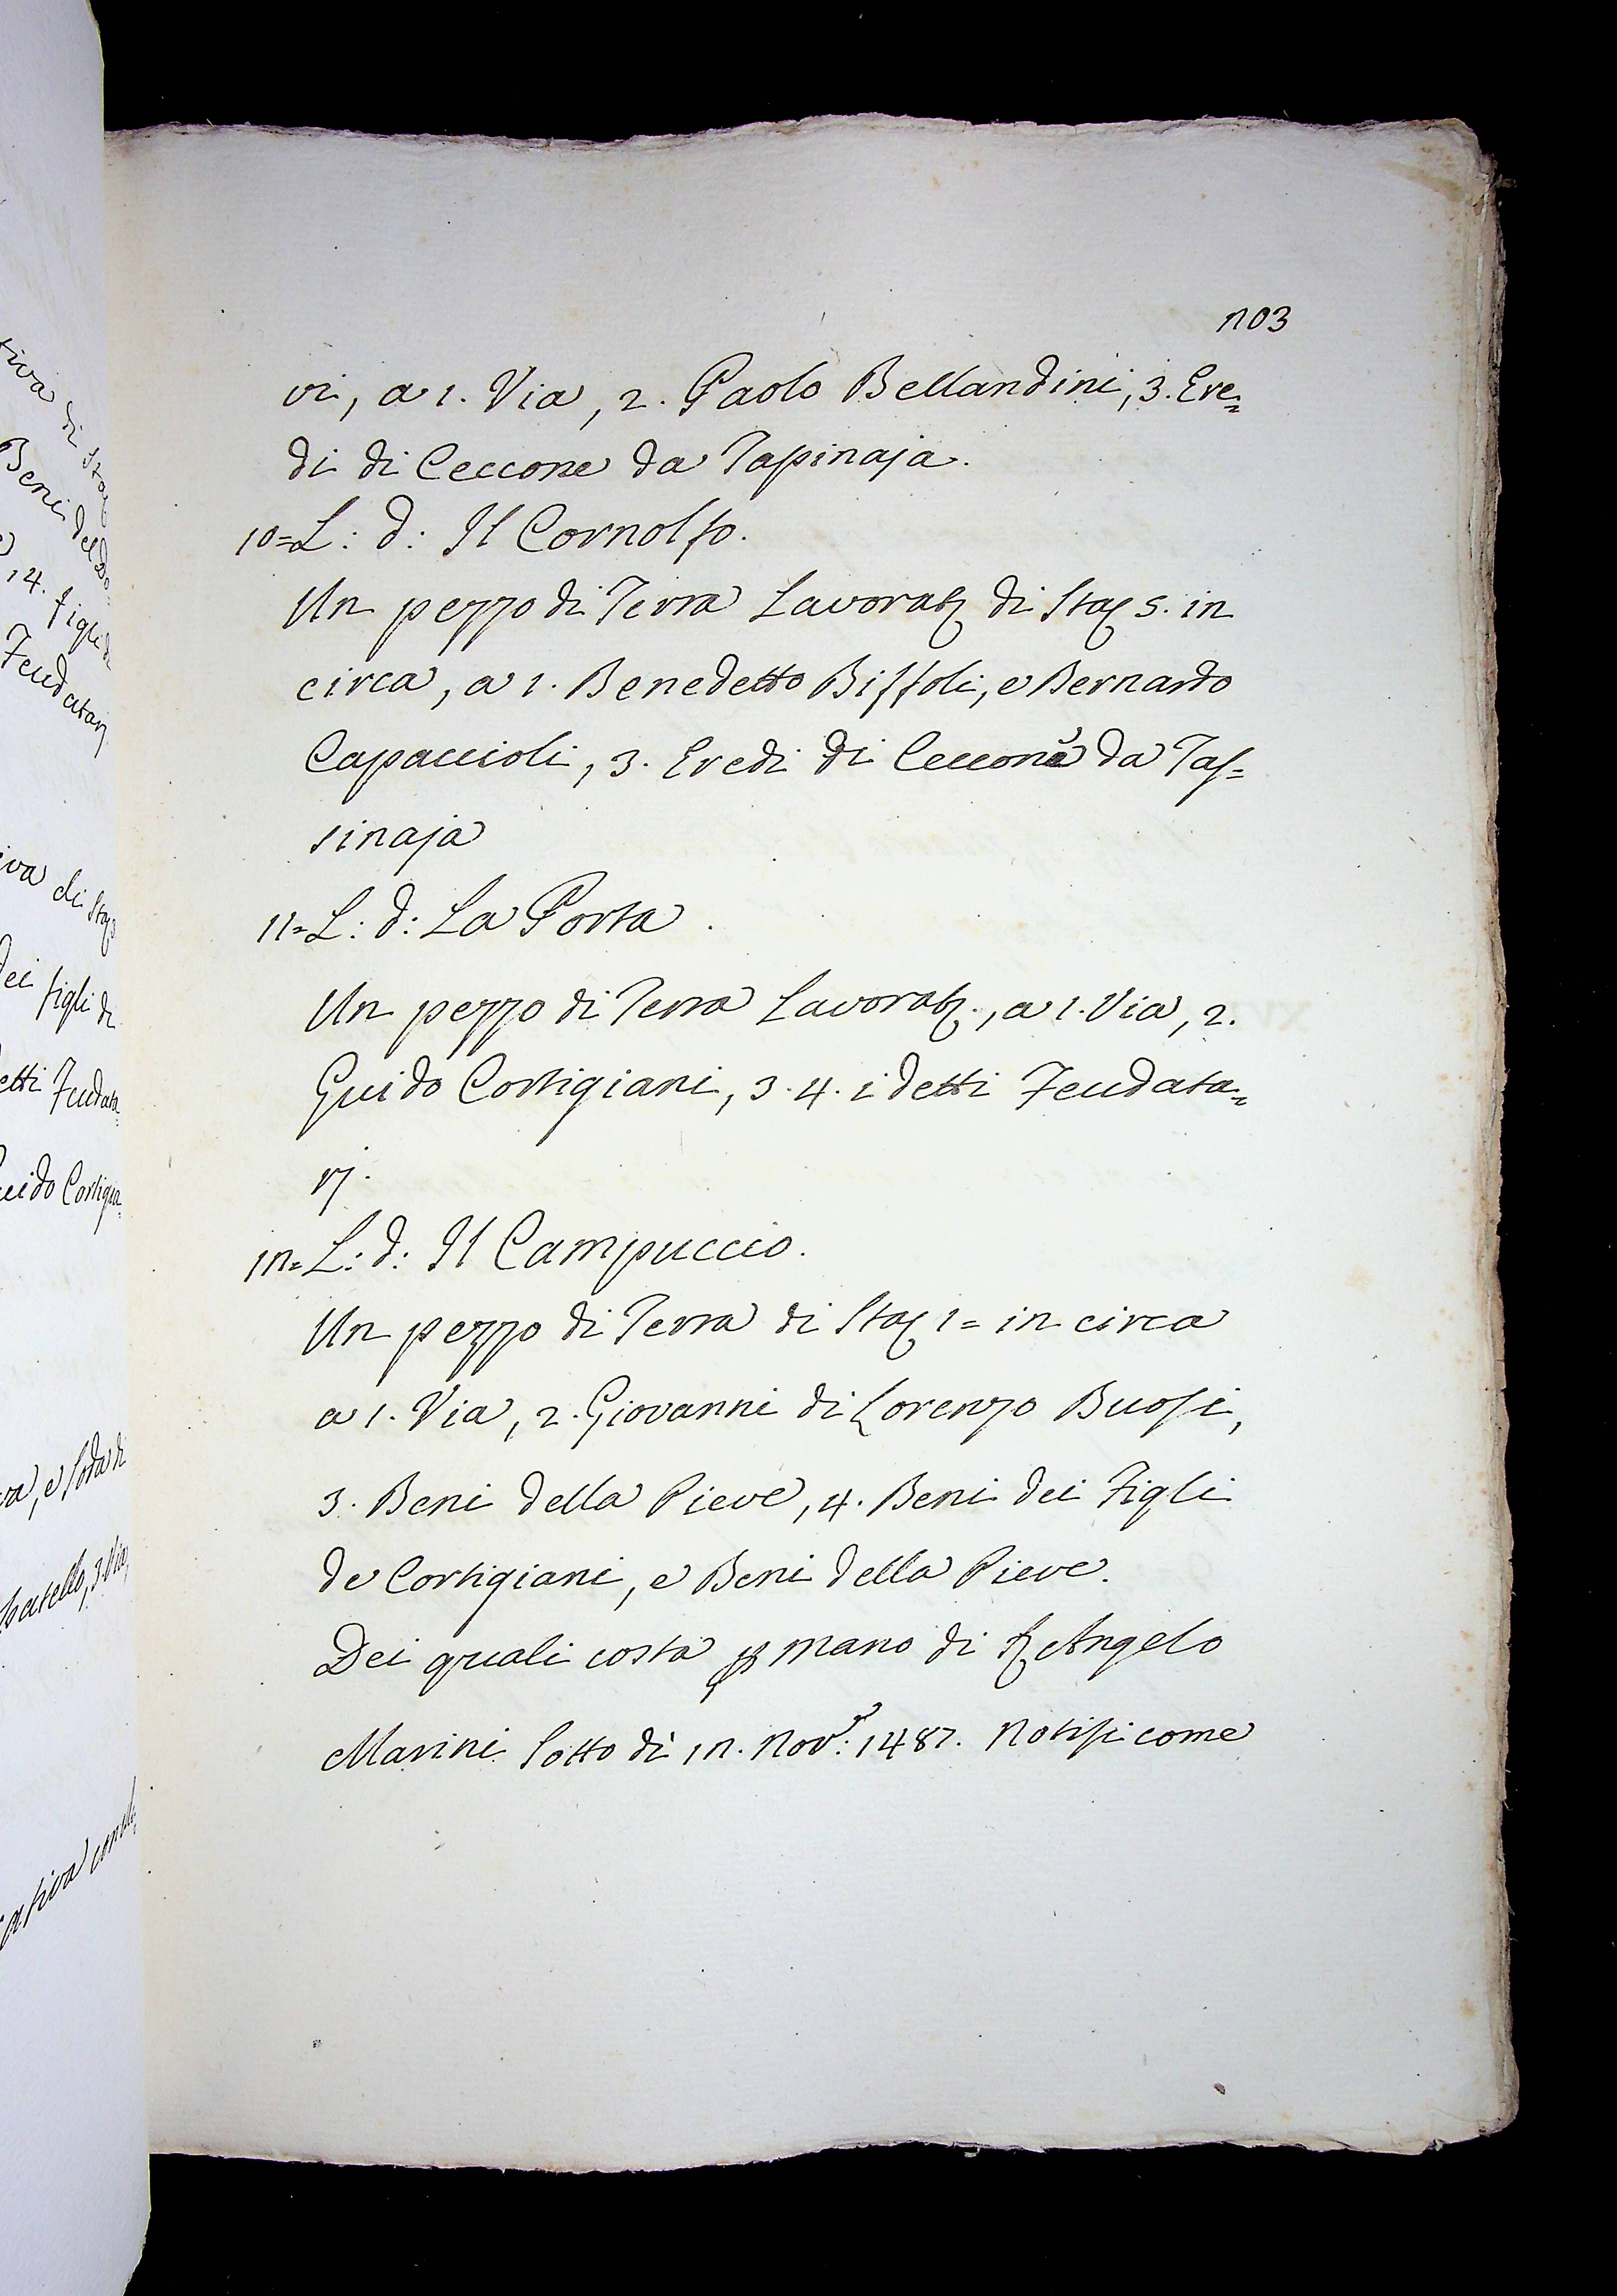 203
vi, a 1. Via, 2. Paolo Bellandini, 3. Ere=
di di Ceccone da Tassinaja.
10= L: d: Il Cornolso.
Un pezzo di Terra Lavorat: di Sta: 5. in
circa, a 1. Benedetto Biffoli, e Bernardo
Capaccioli, 3. Eredi di Ceccone da Tas=
sinaja
11= L: d: La Porta.
Un pezzo di Terra Lavorat:, a 1. Via, 2.
Guido Cortigiani, 3. 4. i detti Feudata=
rj.
12= L: d: Il Campuccio.
Un pezzo di Terra di Sta: 1= in circa
a 1. Via, 2. Giovanni di Lorenzo Buosi,
3. Beni della Pieve, 4. Beni dei Figli
de Cortigiani, e Beni della Pieve.
Dei quali costa p mano di Angelo
Marini sotto dì 12. Nov.e: 1487. Notisi come